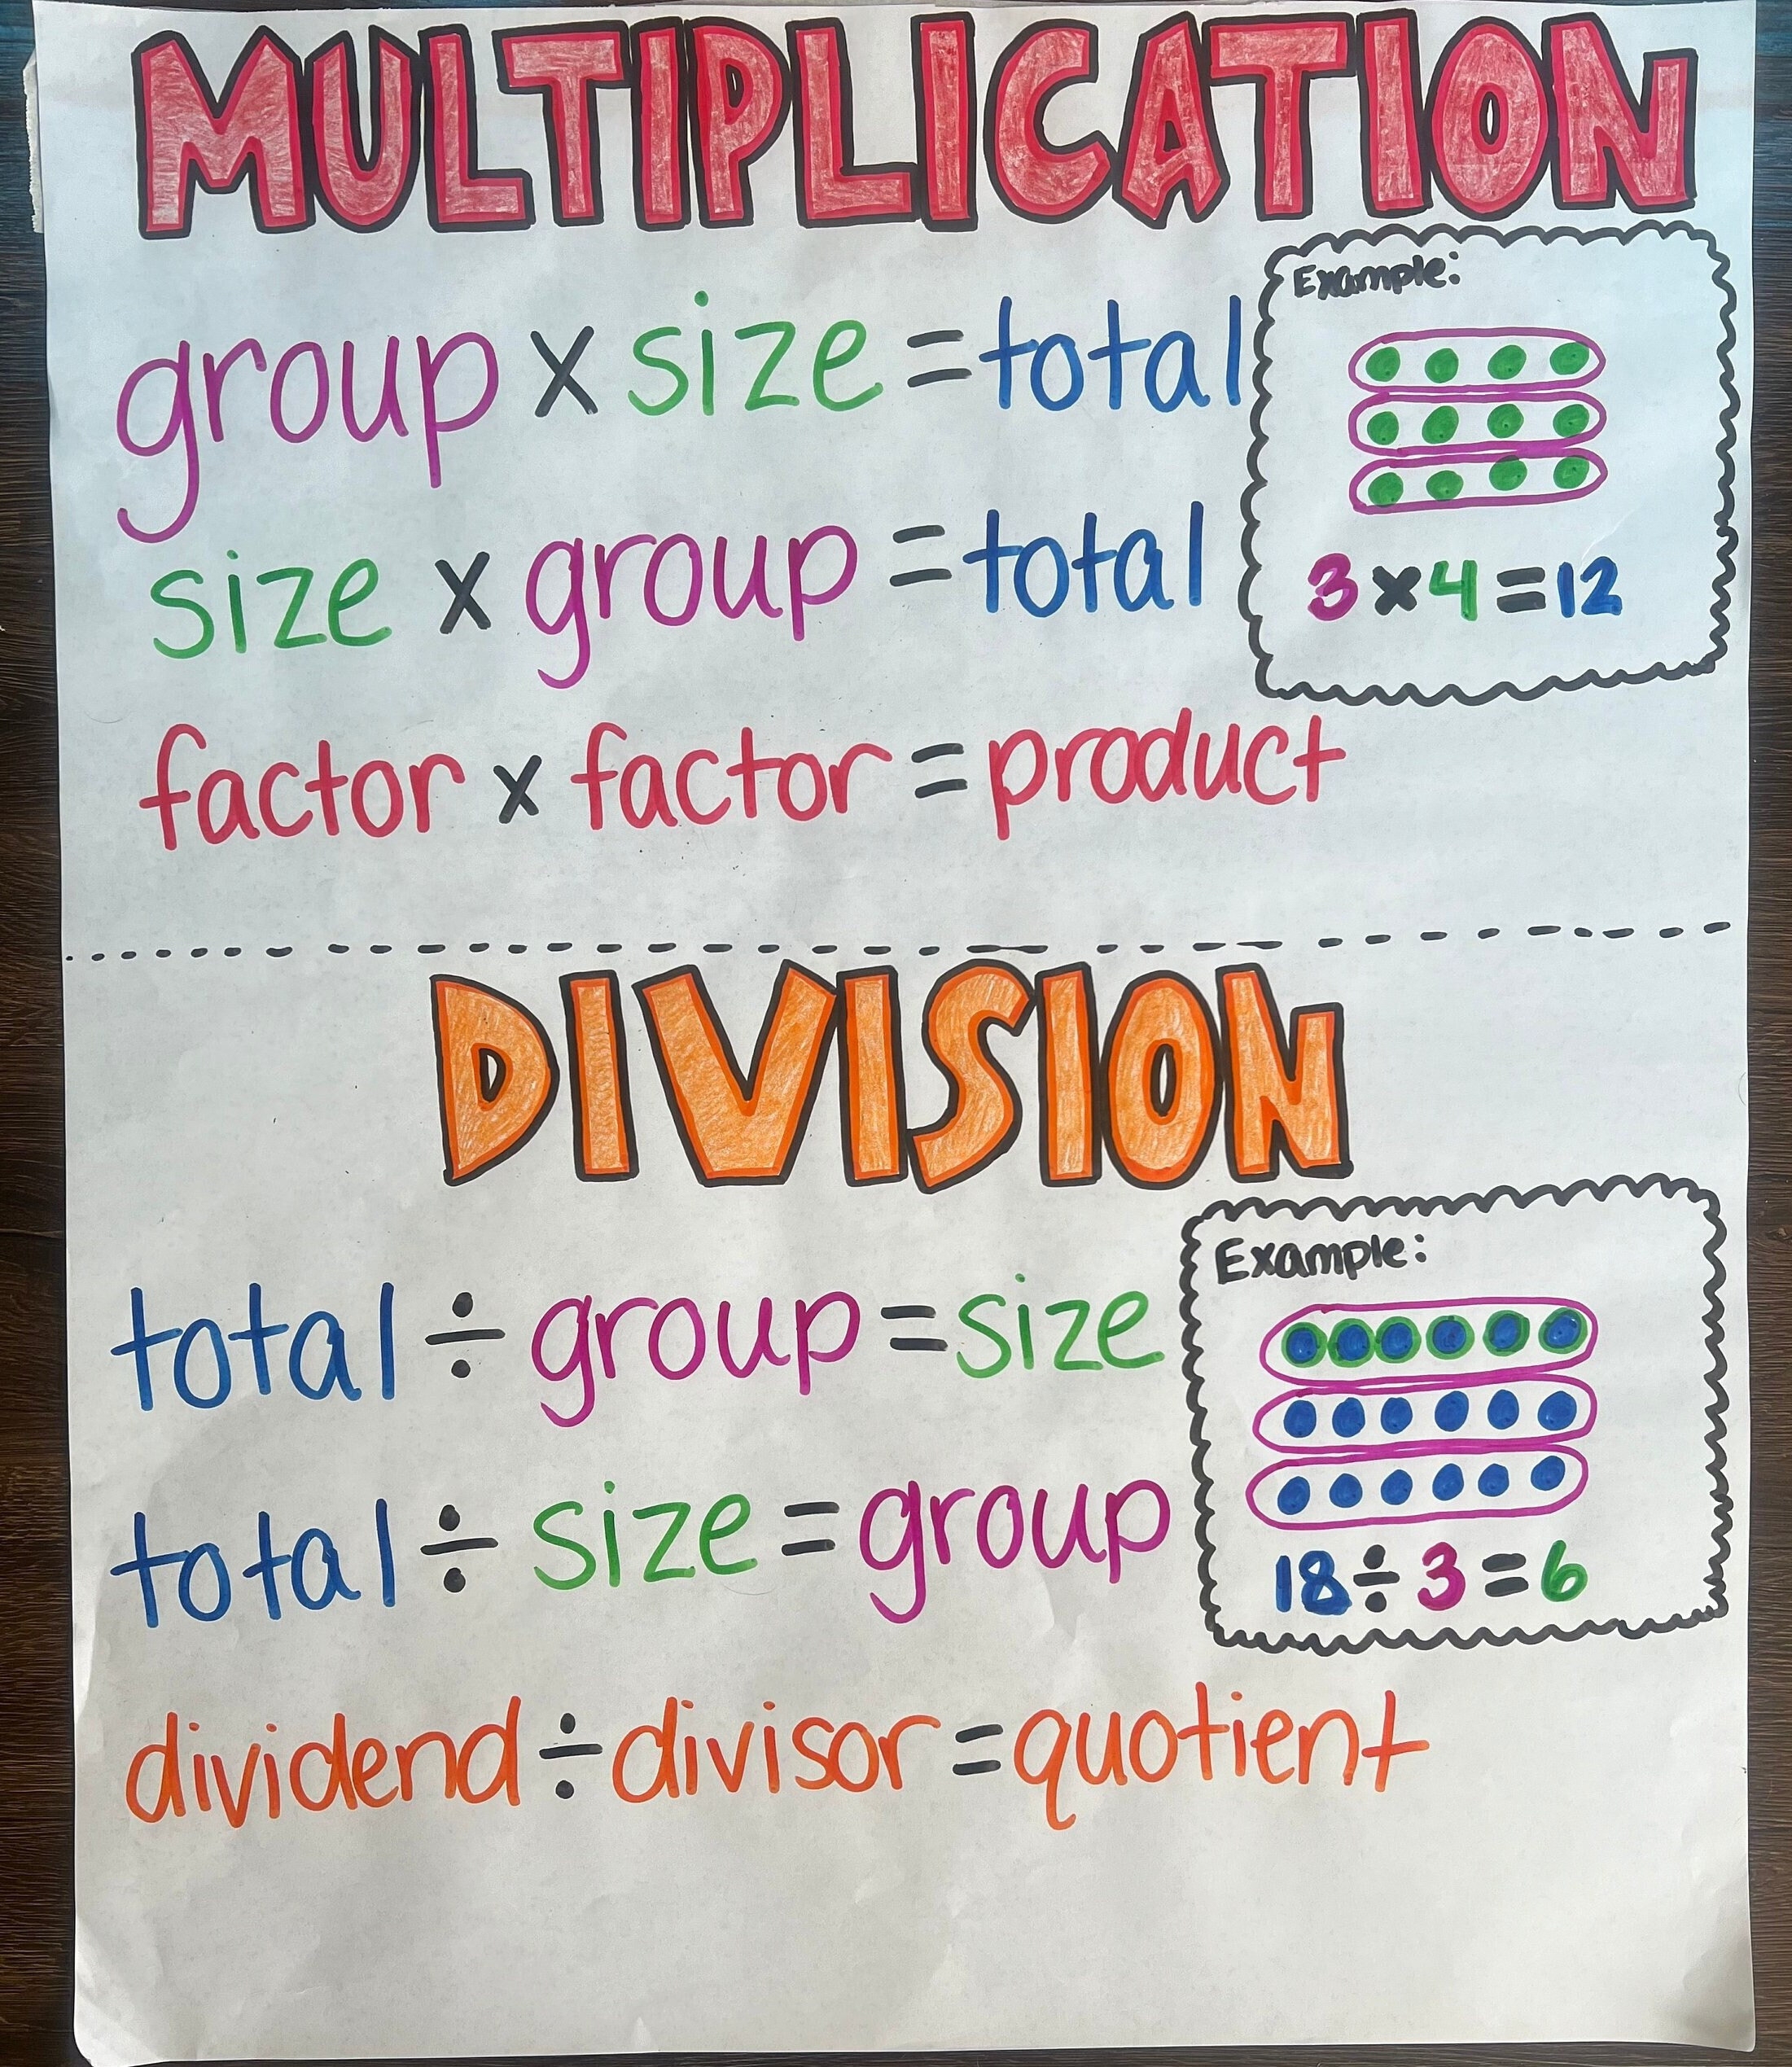 MULTIPLICATION
group x size = total
Example:
3 x 4 = 12
size x group = total
factor x factor = product
DIVISION
total ÷ group = size
Example:
18 ÷ 3 = 6
total ÷ size = group
dividend ÷ divisor = quotient